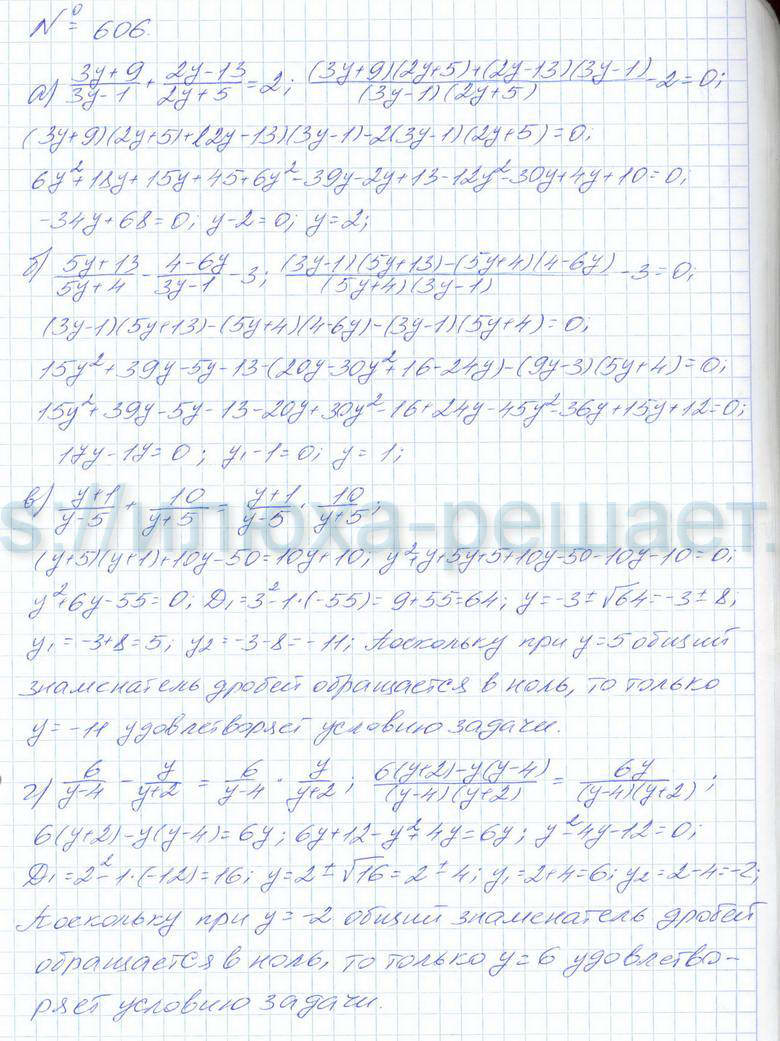 № 606.
а) (3y+9)/(3y-1) + (2y-13)/(2y+5) = 2; ((3y+9)(2y+5)+(2y-13)(3y-1))/((3y-1)(2y+5)) - 2=0;
(3y+9)(2y+5)+(2y-13)(3y-1)-2(3y-1)(2y+5)=0;
6y²+18y+15y+45+6y²-39y-2y+13-12y²-30y+4y+10=0;
-34y+68=0; y-2=0; y=2;
б) (5y+13)/(5y+4) - (4-6y)/(3y-1) - 3; ((3y-1)(5y+13)-(5y+4)(4-6y))/((5y+4)(3y-1)) - 3=0;
(3y-1)(5y+13)-(5y+4)(4-6y)-(3y-1)(5y+4)=0;
15y²+39y-5y-13-(20y-30y²+16-24y)-(9y-3)(5y+4)=0;
15y²+39y-5y-13-20y+30y²-16+24y-45y²-36y+15y+12=0;
17y-17=0; y-1=0; y=1;
в) (y+1)/(y-5) + 10/(y+5) = (y+1)/(y-5) · 10/(y+5);
s://илюха-решает.
(y+5)(y+1)+10y-50=10y+10; y²+y+5y+5+10y-50-10y-10=0;
y²+6y-55=0; D₁=3²-1·(-55)=9+55=64; y=-3±√64=-3±8;
y₁=-3+8=5; y₂=-3-8=-11; Поскольку при y=5 общий
знаменатель дробей обращается в ноль, то только
y=-11 удовлетворяет условию задачи.
г) 6/(y-4) - y/(y+2) = 6/(y-4) · y/(y+2); (6(y+2)-y(y-4))/((y-4)(y+2)) = 6y/((y-4)(y+2));
6(y+2)-y(y-4)=6y; 6y+12-y²+4y=6y; y²-4y-12=0;
D₁=2²-1·(-12)=16; y=2±√16=2±4; y₁=2+4=6; y₂=2-4=-2;
Поскольку при y=-2 общий знаменатель дробей
обращается в ноль, то только y=6 удовлетво-
ряет условию задачи.